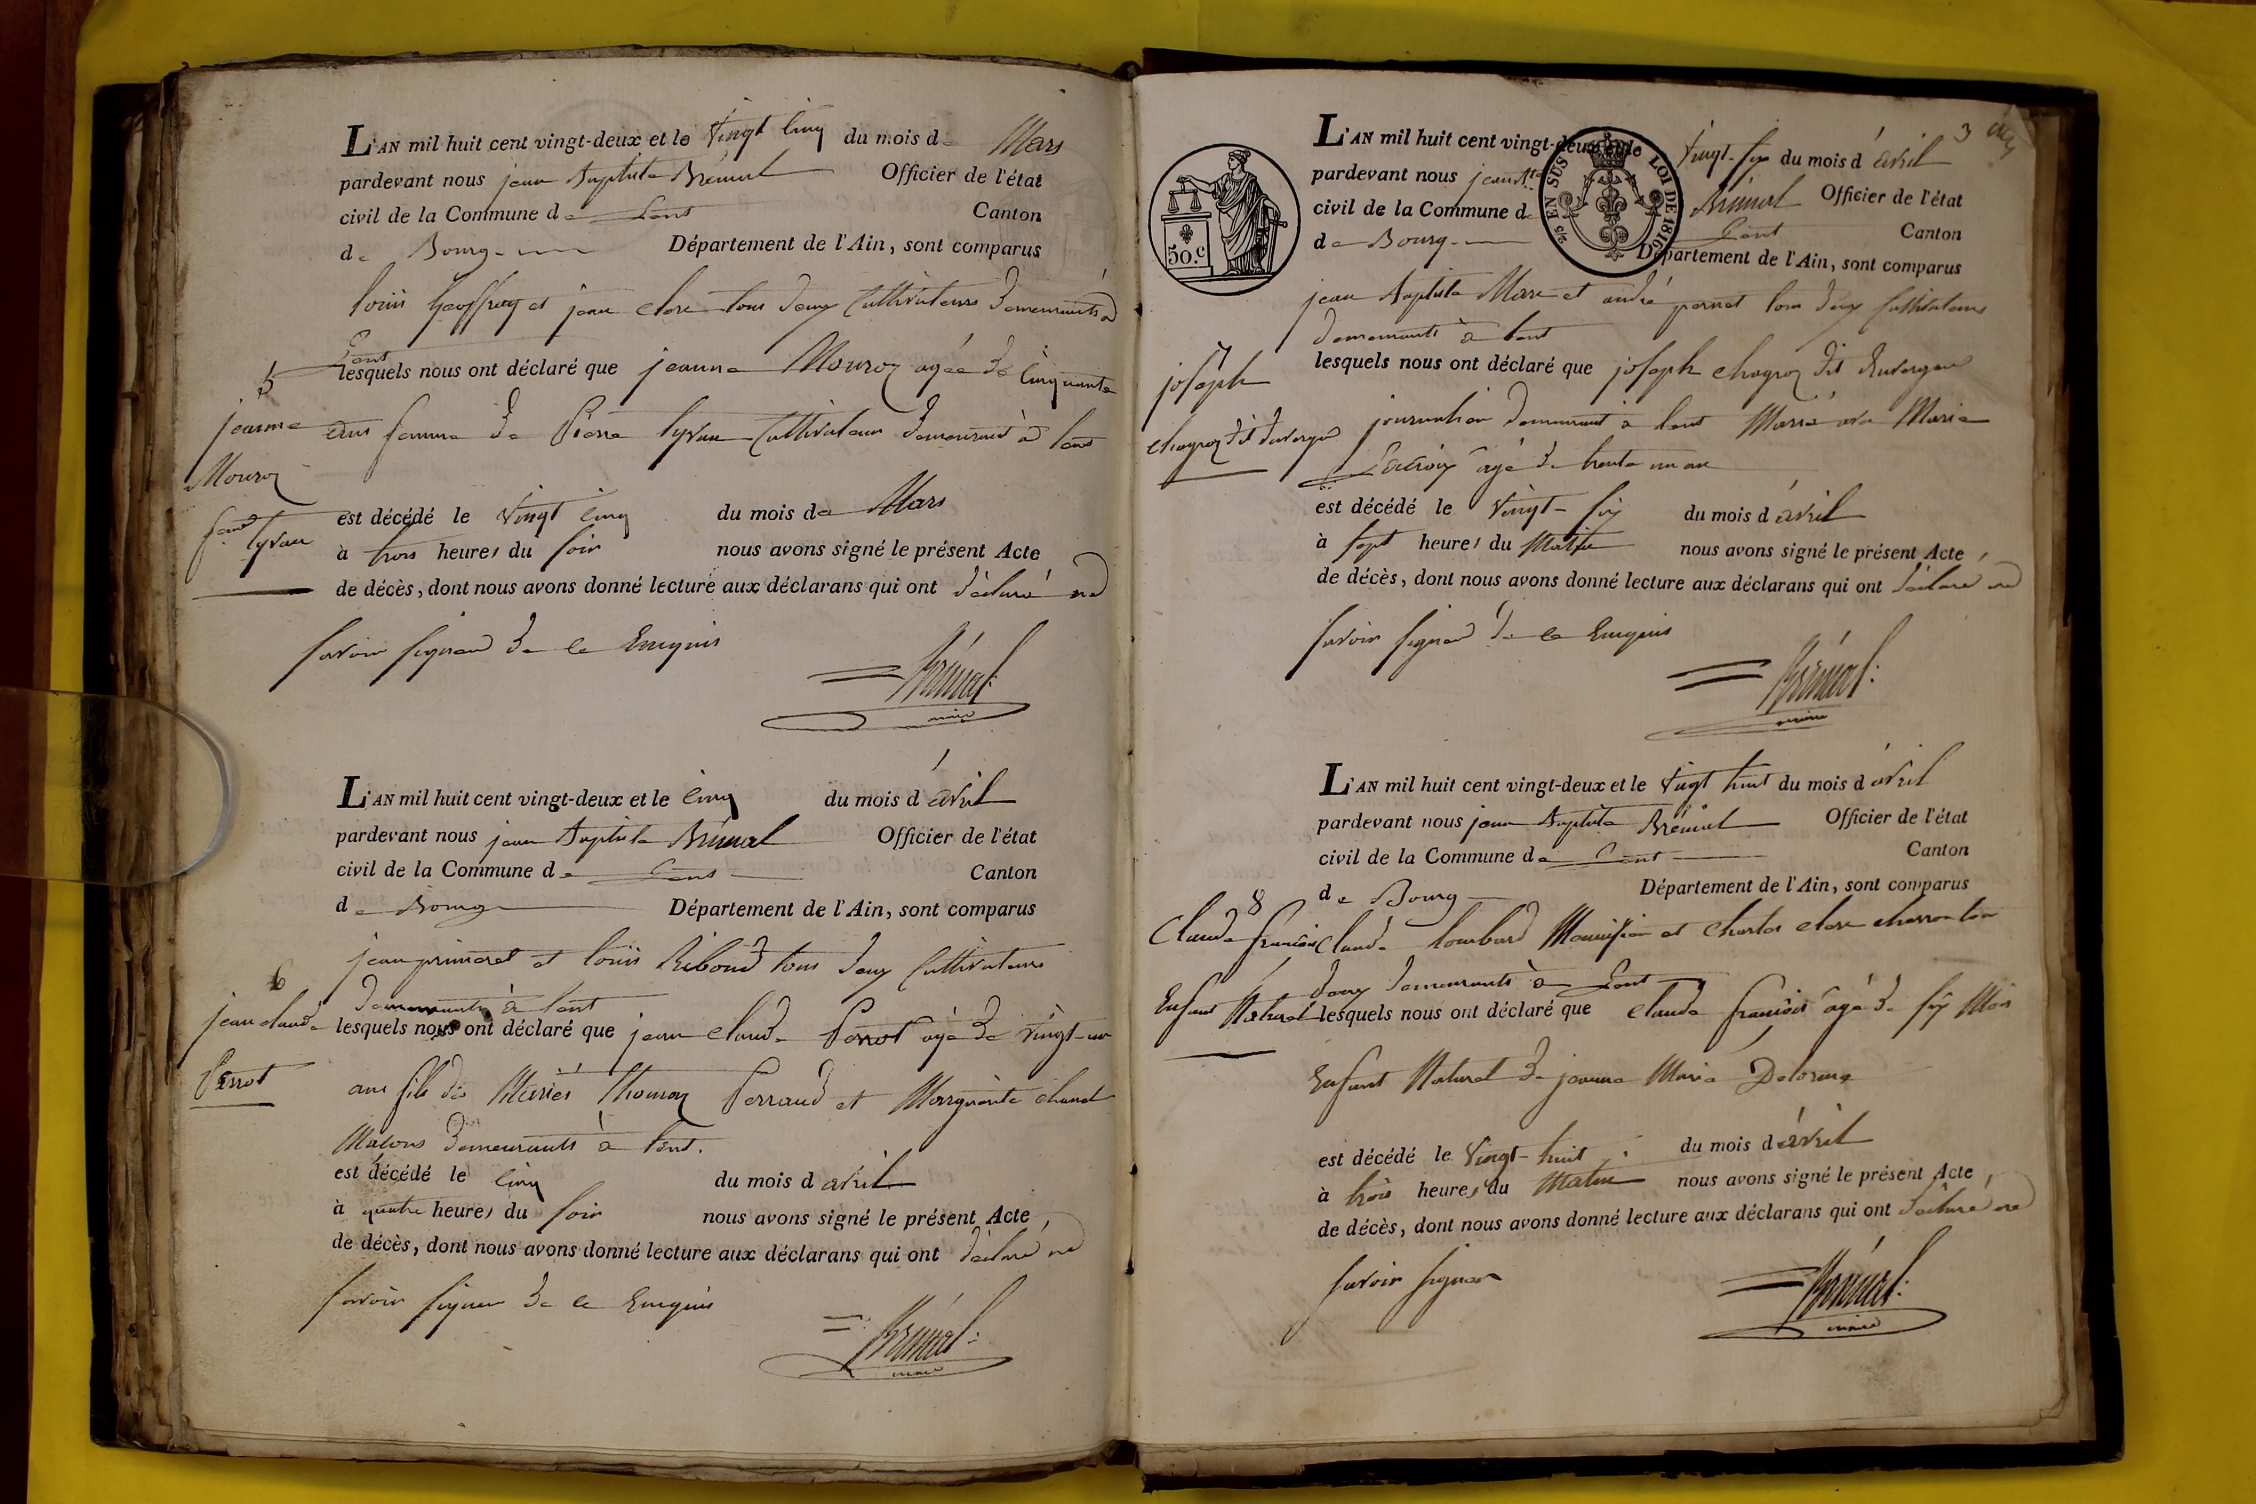 L'AN mil huit cent vingt-deux et le Vingt Cinq du mois de Mars
pardevant nous jean Baptiste Brénial Officier de l'état
civil de la Commune de Canton
de Bourg Département de l'Ain, sont comparus
louis geoffray et jean clerc tous deux Cultivateurs demeurants à
lesquels nous ont déclaré que jeanne Mouroz agée de Cinquante
ans femme de Pierre tyvan Cultivateur demeurant à
est décédé le Vingt cinq du mois de Mars
à trois heures du soir nous avons signé le présent Acte
de décès, dont nous avons donné lecture aux déclarans qui ont déclaré ne
savoir signer de ce Enquis
Brénial
maire
5
jeanne
Mouroz
tyvan
L'AN mil huit cent vingt-deux et le Cinq du mois d'avril
pardevant nous jean Baptiste Brénial Officier de l'état
civil de la Commune de Canton
de Bourg Département de l'Ain, sont comparus
jean et louis Riboud tous deux Cultivateurs
demeurants à
lesquels nous ont déclaré que jean claude Perrot agé de Vingt-un
ans fils des Mariés Thomas Perraud et Marguerite
demeurants à
est décédé le Cinq du mois d avril
à quatre heures du soir nous avons signé le présent Acte
de décès, dont nous avons donné lecture aux déclarans qui ont déclaré ne
savoir signer de ce Enquis
Brénial
maire
6
jean claude
Perrot
3
50.c
EN SUS
LOI DE 1816
L'AN mil huit cent vingt-deux et le Vingt-six du mois d'avril
pardevant nous jean Bte Brénial Officier de l'état
civil de la Commune de Canton
de Bourg Département de l'Ain, sont comparus
jean Baptiste More et andré pernet tous deux Cultivateurs
demeurants à
lesquels nous ont déclaré que joseph chagroz dit
journalier demeurant à Marié avec Marie
agé de trente un an
est décédé le Vingt-six du mois d'avril
à sept heures du Matin nous avons signé le présent Acte
de décès, dont nous avons donné lecture aux déclarans qui ont déclaré ne
savoir signer de ce Enquis
Brénial
maire
7
joseph
chagroz dit
L'AN mil huit cent vingt-deux et le Vingt huit du mois d'avril
pardevant nous jean Baptiste Brénial Officier de l'état
civil de la Commune de Canton
de Bourg Département de l'Ain, sont comparus
claude lombard et Charles clerc charron tous
deux demeurants à
lesquels nous ont déclaré que claude françois agé de six Mois
Enfant Naturel de jeanne Marie Delorme
est décédé le Vingt-huit du mois d'avril
à trois heures du Matin nous avons signé le présent Acte
de décès, dont nous avons donné lecture aux déclarans qui ont déclaré ne
savoir signer
Brénial
maire
8
Claude françois
Enfant Naturel